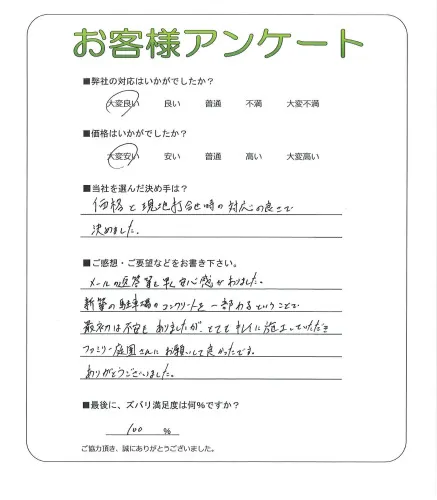 お客様アンケート
■弊社の対応はいかがでしたか?
大変良い 良い 普通 不満 大変不満
■価格はいかがでしたか?
大変安い 安い 普通 高い 大変高い
■当社を選んだ決め手は?
価格と現地打合せ時の対応の良さで
決めました。
■ご感想・ご要望などをお書き下さい。
メールの返答等も早く安心感がありました。
新築の駐車場のコンクリートを一部わるということで
最初は不安もありましたが、とてもキレイに施工していただき
ファミリー庭園さんにお願いして良かったです。
ありがとうございました。
■最後に、ズバリ満足度は何%ですか?
100 %
ご協力頂き、誠にありがとうございました。